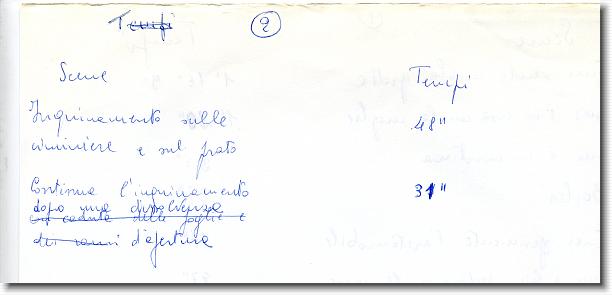 Tempi 2
Scene Tempi
Inquinamento sulle 48"
ciminiere e sul prato
Continua l'inquinamento 31"
dopo una dissolvenza
con caduta delle foglie e
dei rami d'apertura